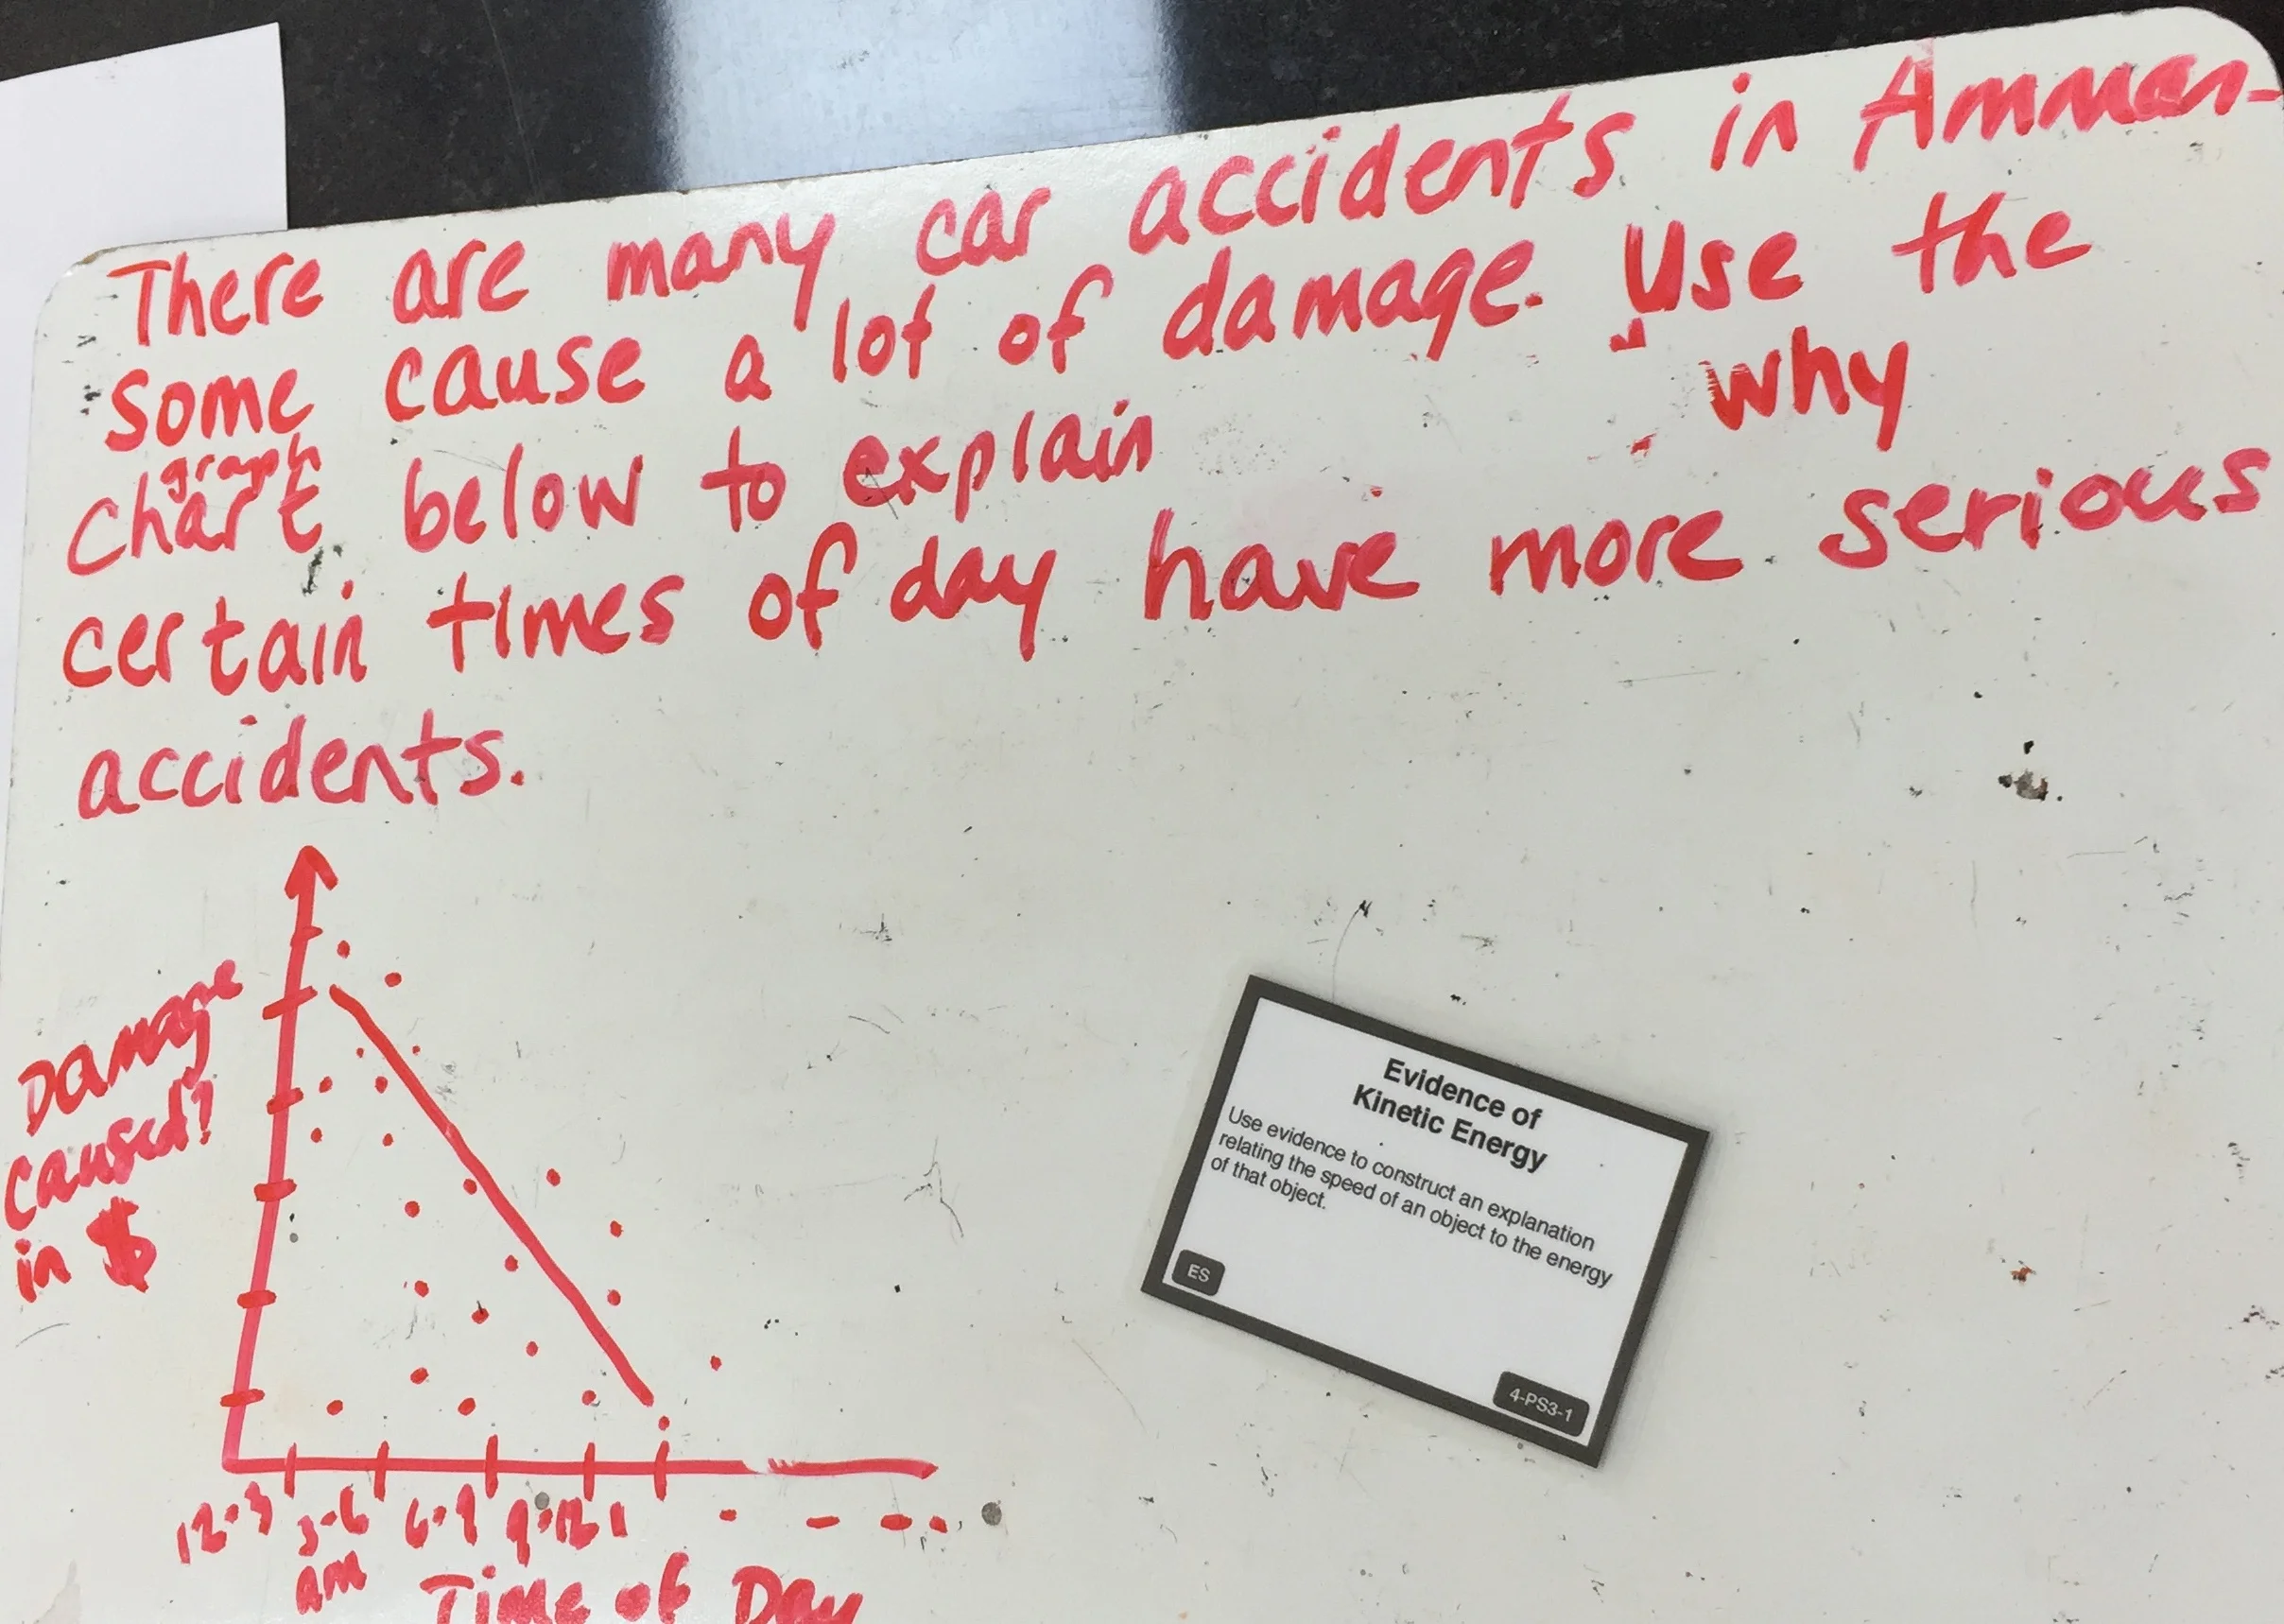 There are many car accidents in Amman-
some cause a lot of damage. Use the
graph
chart below to explain why
certain times of day have more serious
accidents.
Damage
caused?
in $
12-3 3-6 6-9 9-12 1 - - - -
am
Time of Day
Evidence of
Kinetic Energy
Use evidence to construct an explanation
relating the speed of an object to the energy
of that object.
ES
4-PS3-1